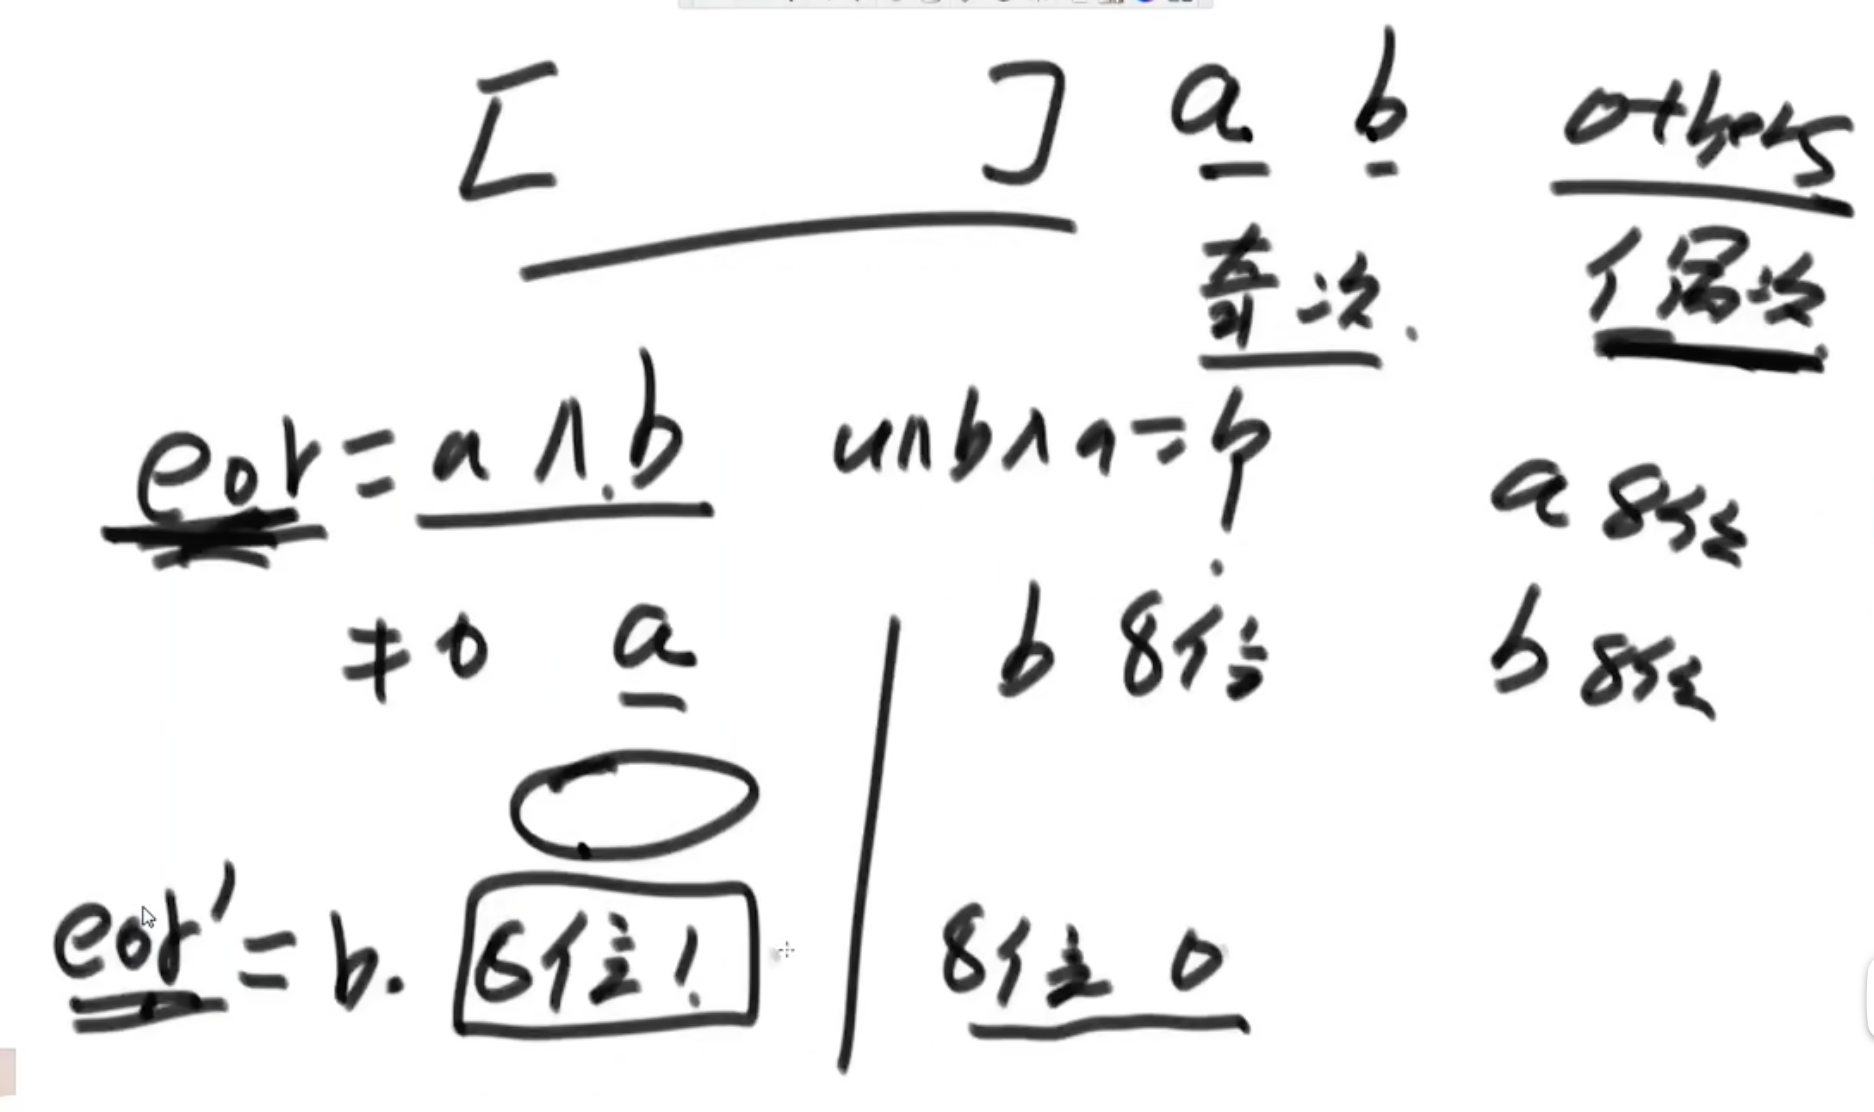 [ ] a b others
奇次. 偶次
eor = a ∧ b a∧b∧a = b
a 8位
≠ 0 a b 8位 b 8位
eor' = b. 8位 1 8位 0